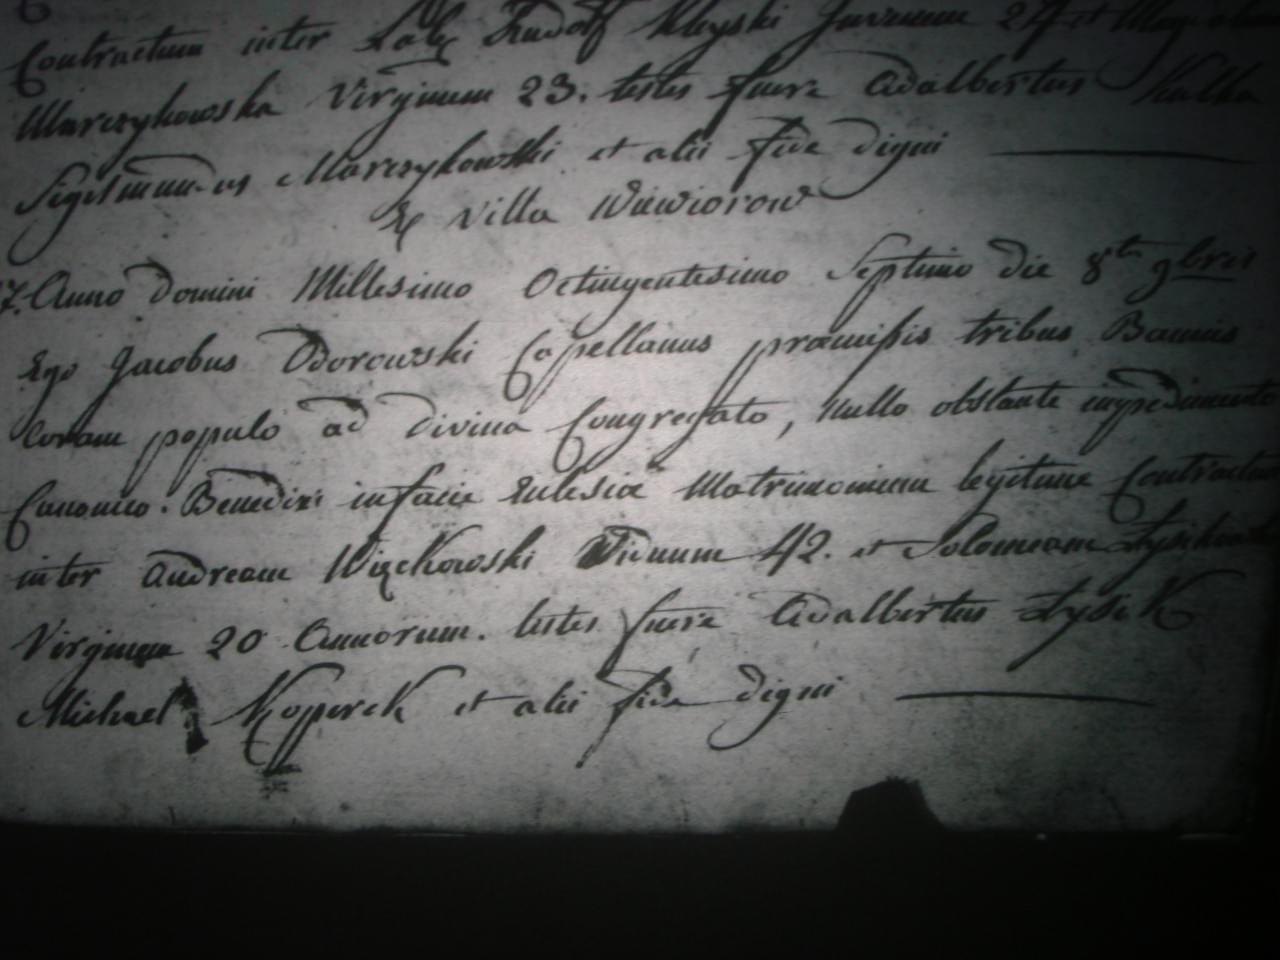 Contractum inter Rudolf Kleyski Juvenem 27 et
Marczykowska Virginem 23. testes fuere Adalbertus Kulka
Sigismundus Marczykowski et alii fide digni
Ex Villa Wiewiorow
7. Anno Domini Millesimo Octingentesimo Septimo die 8va 9bris
Ego Jacobus Odorowski Capellanus præmissis tribus Bannis
Coram populo ad Divina Congregato, Nullo obstante impedimento
Canonico. Benedixi in facie Eclesiæ Matrimonium legitime Contractum
inter Andream Więckowski Viduum 42. et Solomeam
Virginem 20 Annorum. testes fuere Adalbertus Łysik
Michael Koperek et alii fide digni